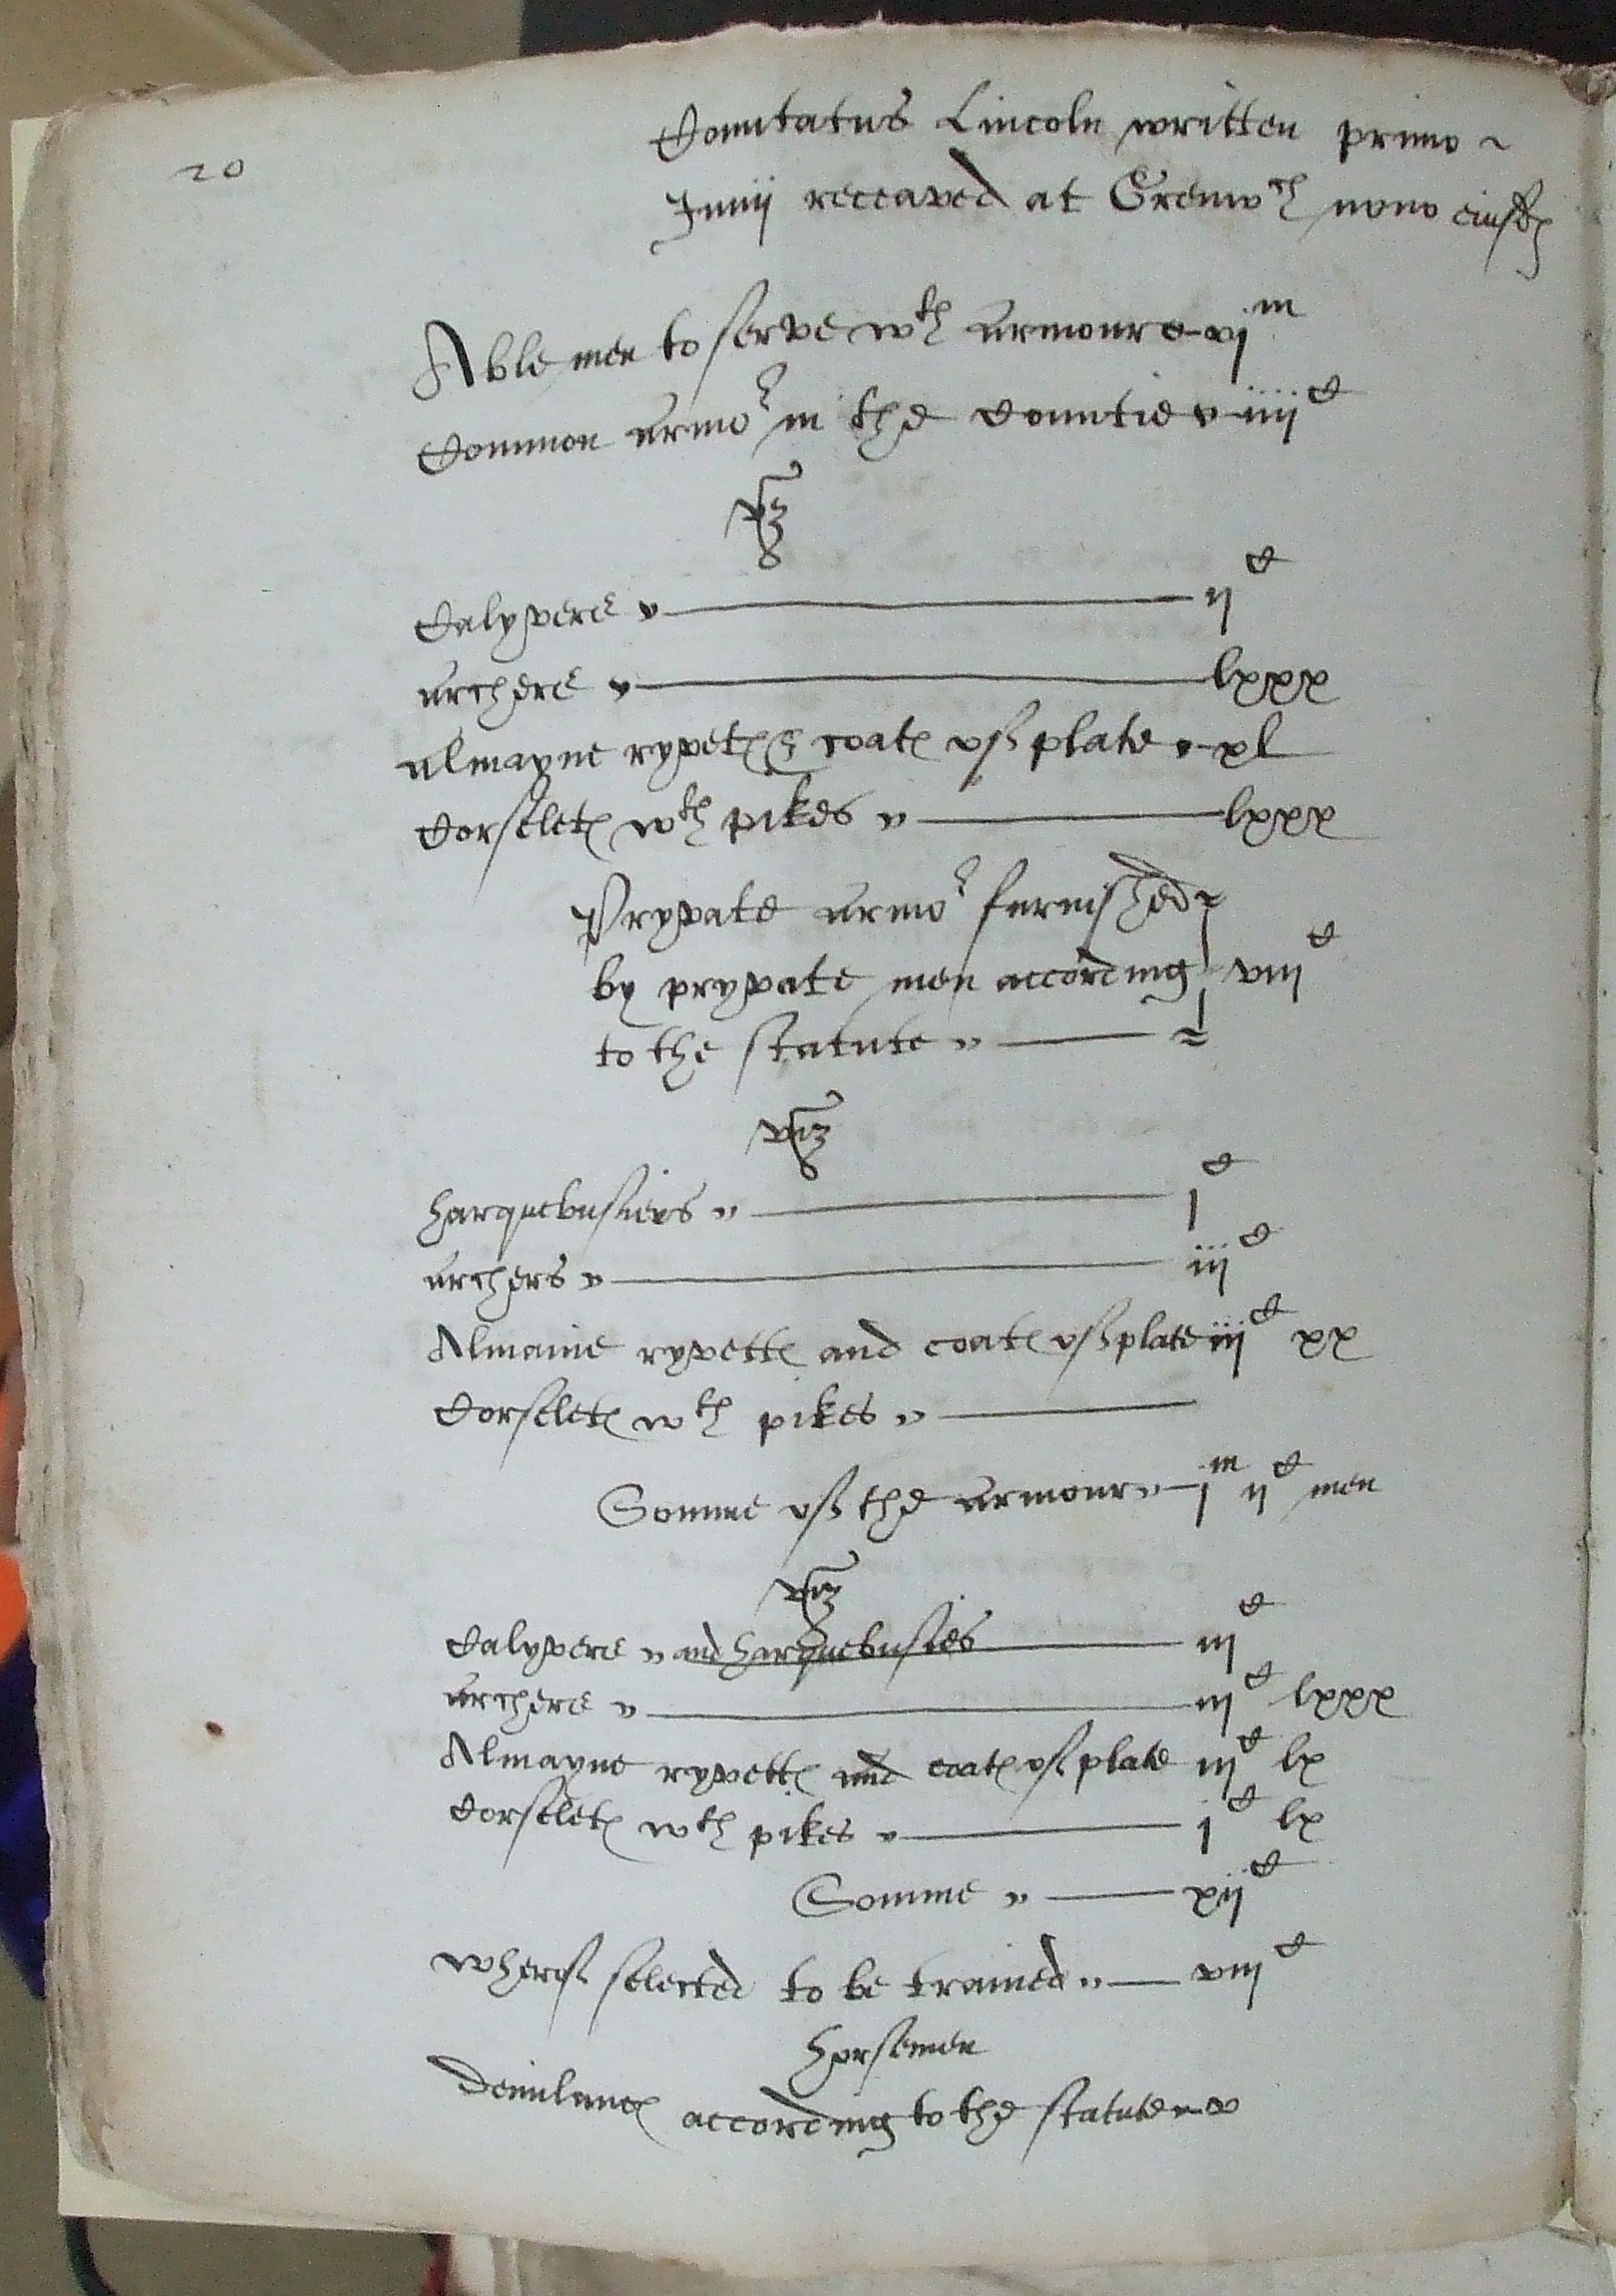 20
Comitatus Lincoln written primo
Junij receaved at Grenwch nono eiusd
Able men to serve wth armoure vjm
Common armor in the Countie iiijC
vz
Calyvers ijC
archers lxxx
almayne ryvets & coats off plate xl
Corselets wth pikes lxxx
Pryvate armor furnished
by pryvate men according viijC
to the statute
viz
harquebusiers jC
archers iijC
Almaine ryvetts and coats off plate iijC xx
Corselets wth pikes
Somme off the armour jm ijC men
viz
Calyvers and harquebusies iijC
archers iijC lxxx
Almayne ryvetts and coats off plate iijC lx
Corselets wth pikes jC lx
Somme xijC
wheroff selected to be trained viijC
horsemen
Demilances according to the statute